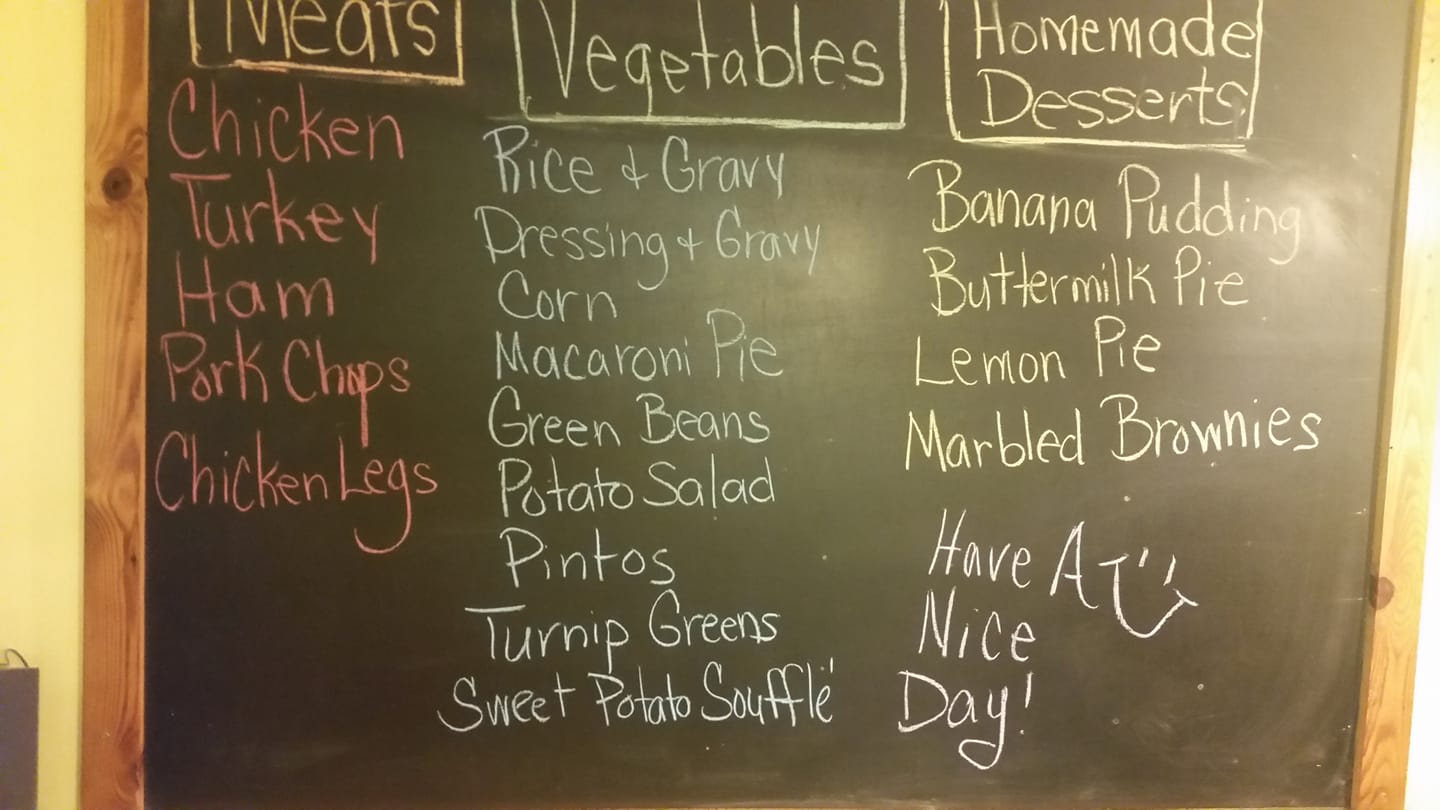 Meats
Chicken
Turkey
Ham
Pork Chops
Chicken Legs
Vegetables
Rice & Gravy
Dressing & Gravy
Corn
Macaroni Pie
Green Beans
Potato Salad
Pintos
Turnip Greens
Sweet Potato Soufflé
Homemade
Desserts
Banana Pudding
Buttermilk Pie
Lemon Pie
Marbled Brownies
Have A
Nice
Day!